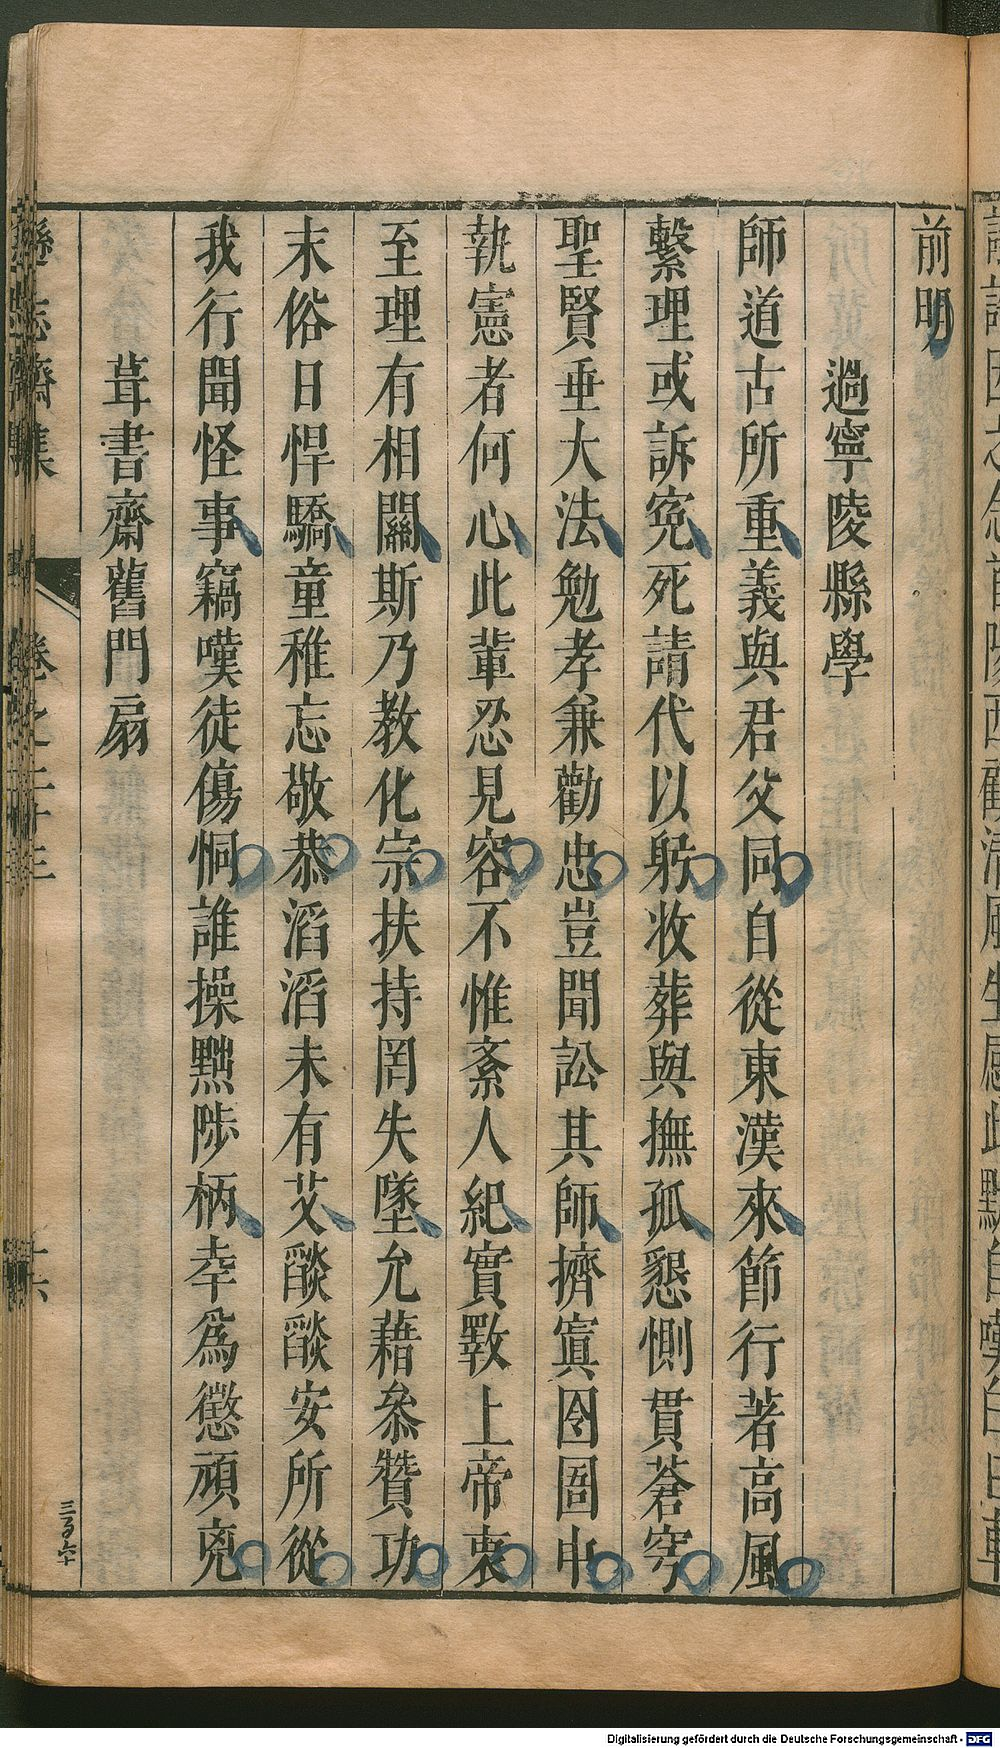 前明
過寧陵縣學
師道古所重義與君父同自從東漢來節行著高風
繫理或訴寃死請代以躬收葬與撫孤懇惻貫蒼穹
聖賢垂大法勉孝兼勸忠豈聞訟其師擠寘囹圄中
執憲者何心此輩忍見容不惟紊人紀實斁上帝衷
至理有相關斯乃教化宗扶持罔失墜允藉叅贊功
末俗日悍驕童稚忘敬恭滔滔未有艾燄燄安所從
我行聞怪事竊嘆徒傷恫誰操黜陟柄幸爲懲頑兇
葺書齋舊門扇
卷之二十三
三百六十
Digitalisierung gefördert durch die Deutsche Forschungsgemeinschaft - DFG